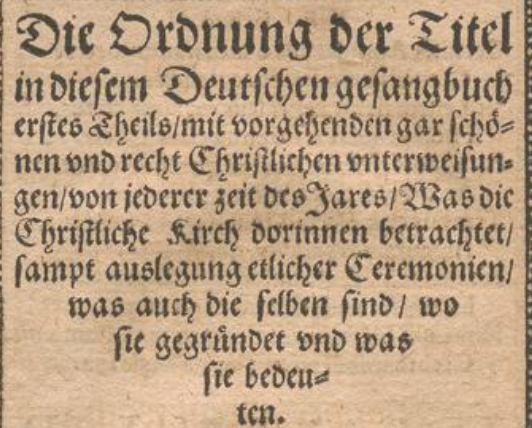 Die Ordnung der Titel
in diesem Deutschen gesangbuch
erstes Theils/mit vorgehenden gar schö⸗
nen vnd recht Christlichen vnterweisun⸗
gen/von jederer zeit des Jares/Was die
Christliche Kirch dorinnen betrachtet/
sampt auslegung etlicher Ceremonien/
was auch die selben sind/ wo
sie gegründet vnd was
sie bedeu⸗
ten.